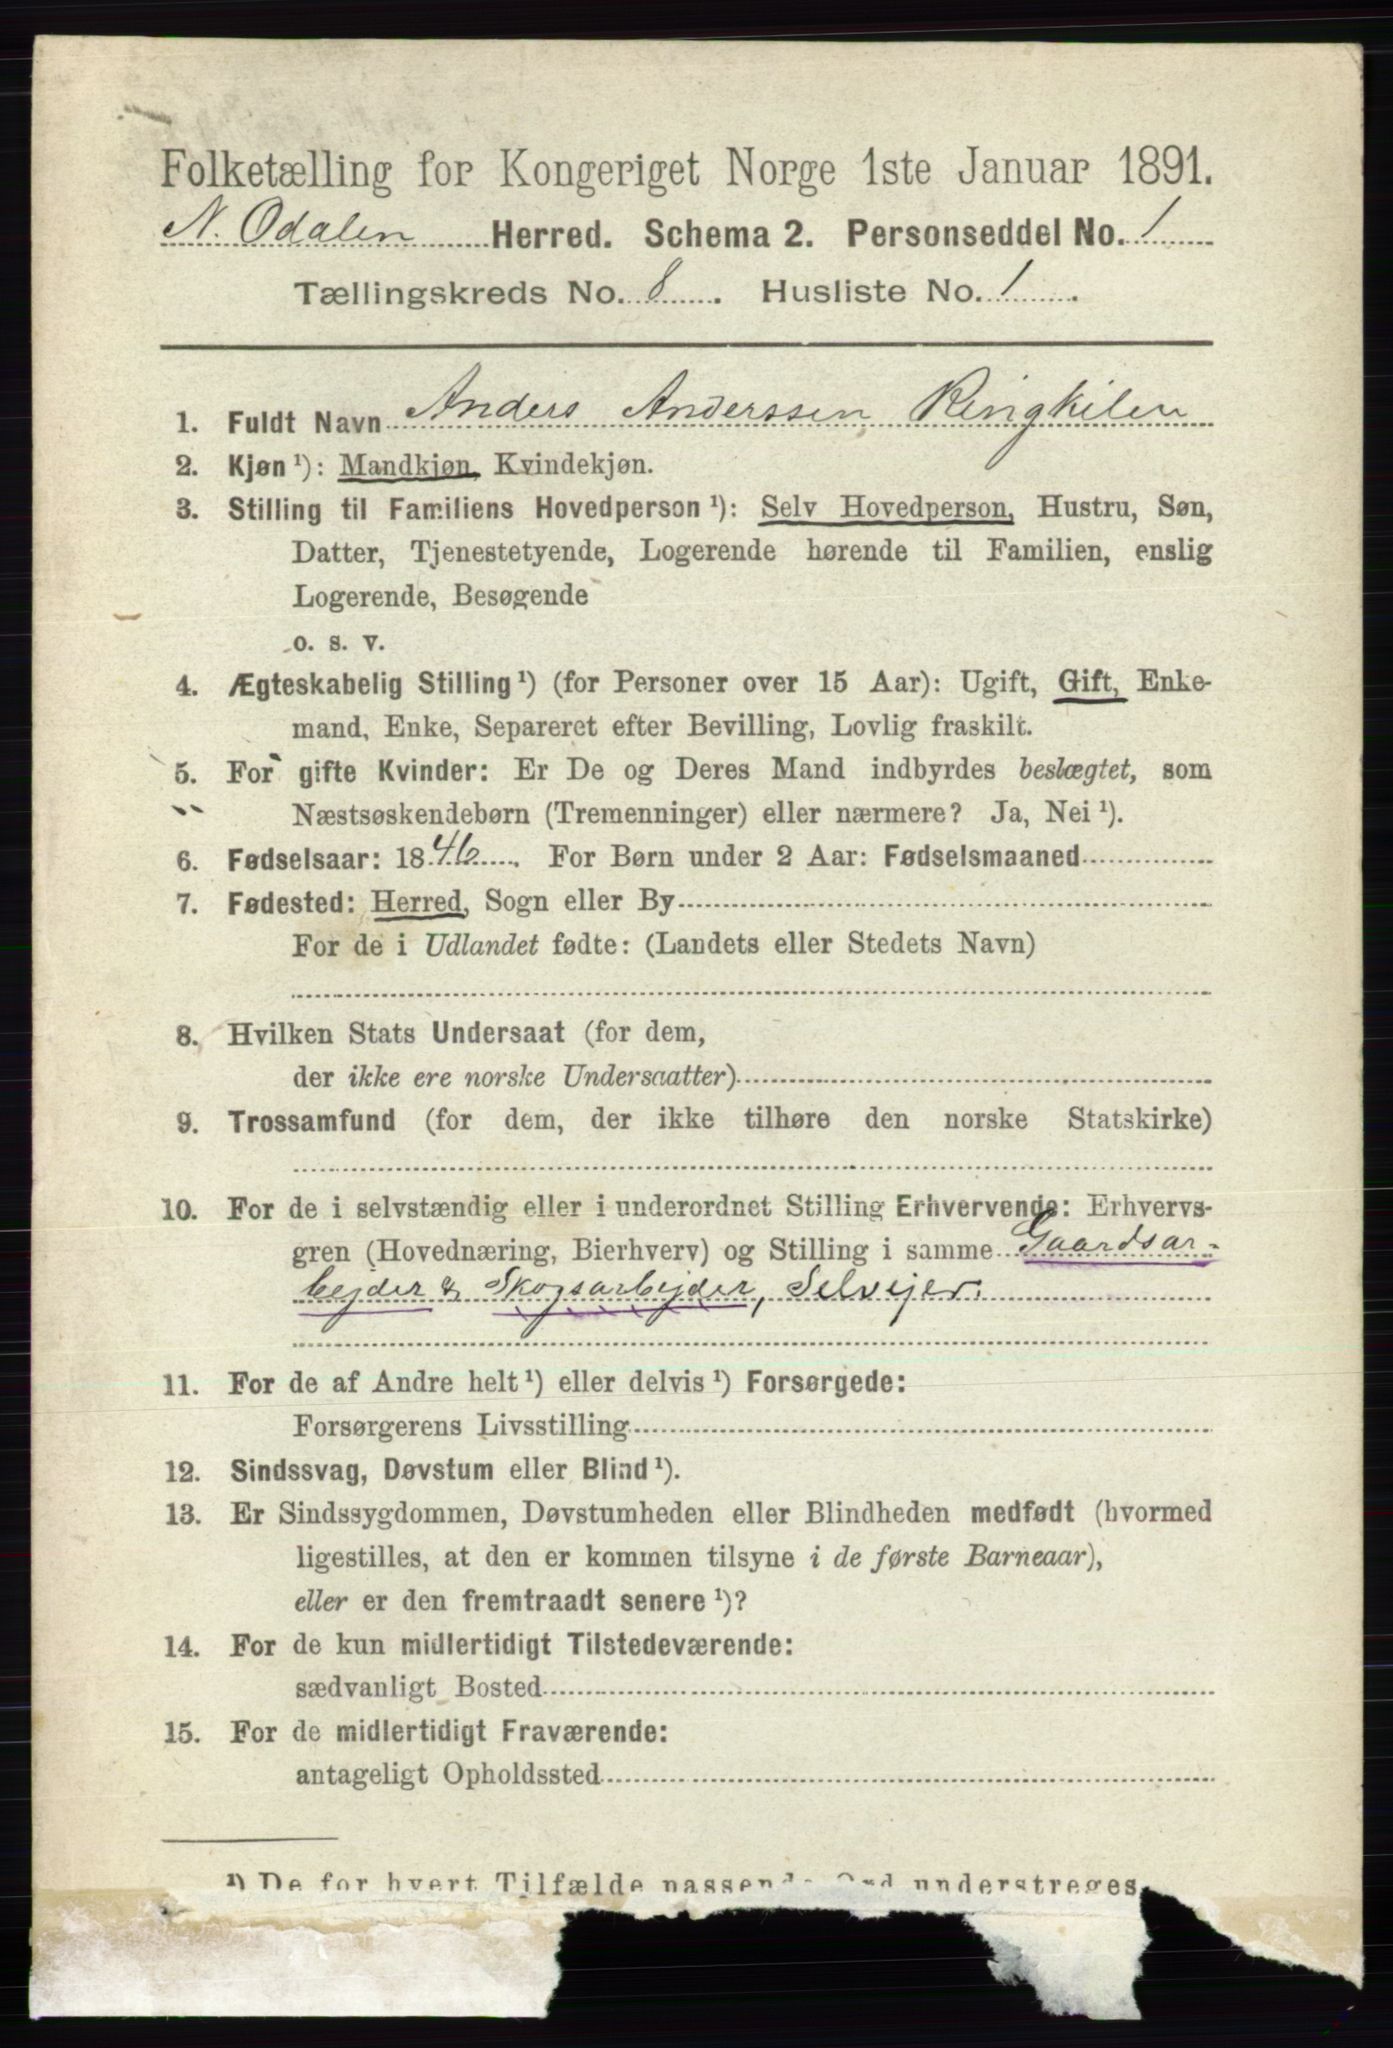 Folketælling for Kongeriget Norge 1ste Januar 1891.
N. Odalen Herred. Schema 2. Personseddel No. 1
Tællingskreds No. 8. Husliste No. 1.
1. Fuldt Navn Anders Anderssen Ringkilen
2. Kjøn ¹): Mandkjøn, Kvindekjøn.
3. Stilling til Familiens Hovedperson ¹): Selv Hovedperson, Hustru, Søn,
Datter, Tjenestetyende, Logerende hørende til Familien, enslig
Logerende, Besøgende
o. s. v.
4. Ægteskabelig Stilling ¹) (for Personer over 15 Aar): Ugift, Gift, Enke-
mand, Enke, Separeret efter Bevilling, Lovlig fraskilt.
5. For gifte Kvinder: Er De og Deres Mand indbyrdes beslægtet, som
Næstsøskendebørn (Tremenninger) eller nærmere? Ja, Nei ¹).
6. Fødselsaar: 1846. For Børn under 2 Aar: Fødselsmaaned
7. Fødested: Herred, Sogn eller By
For de i Udlandet fødte: (Landets eller Stedets Navn)
8. Hvilken Stats Undersaat (for dem,
der ikke ere norske Undersaatter)
9. Trossamfund (for dem, der ikke tilhøre den norske Statskirke)
10. For de i selvstændig eller i underordnet Stilling Erhvervende: Erhvervs-
gren (Hovednæring, Bierhverv) og Stilling i samme Gaardsar-
bejder & Skogsarbejder, Selvejer.
11. For de af Andre helt ¹) eller delvis ¹) Forsørgede:
Forsørgerens Livsstilling
12. Sindssvag, Døvstum eller Blind ¹).
13. Er Sindssygdommen, Døvstumheden eller Blindheden medfødt (hvormed
ligestilles, at den er kommen tilsyne i de første Barneaar),
eller er den fremtraadt senere ¹)?
14. For de kun midlertidigt Tilstedeværende:
sædvanligt Bosted
15. For de midlertidigt Fraværende:
antageligt Opholdssted
¹) De for hvert Tilfælde passende Ord understreges.